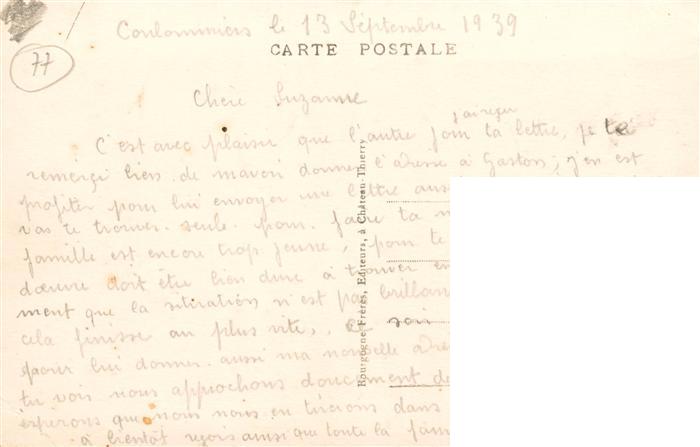 Coulommiers le 13 Septembre 1939
CARTE POSTALE
77
Chère Suzanne
j'ai reçu
C'est avec plaisir que l'autre jour ta lettre, je te
remerçi bien de mavoir donner l'adresse à Gaston, j'en est
profiter pour lui envoyer une lettre aussi
vas te trouver seule pour faire ta
famille est encore trop jeune, pour te
dœuvre doit être bien dure à trouver en
ment que la sitiration n'est pas brillan
cela finisse au plus vite, soi
pour lui donner aussi ma nouvelle adre
tu vois nous approchons doucement de
espérons que nous nous en tirerons dans
à bientôt reçois ainsi que toute la fam
Bourgogne Frères, Editeurs, à Château-Thierry